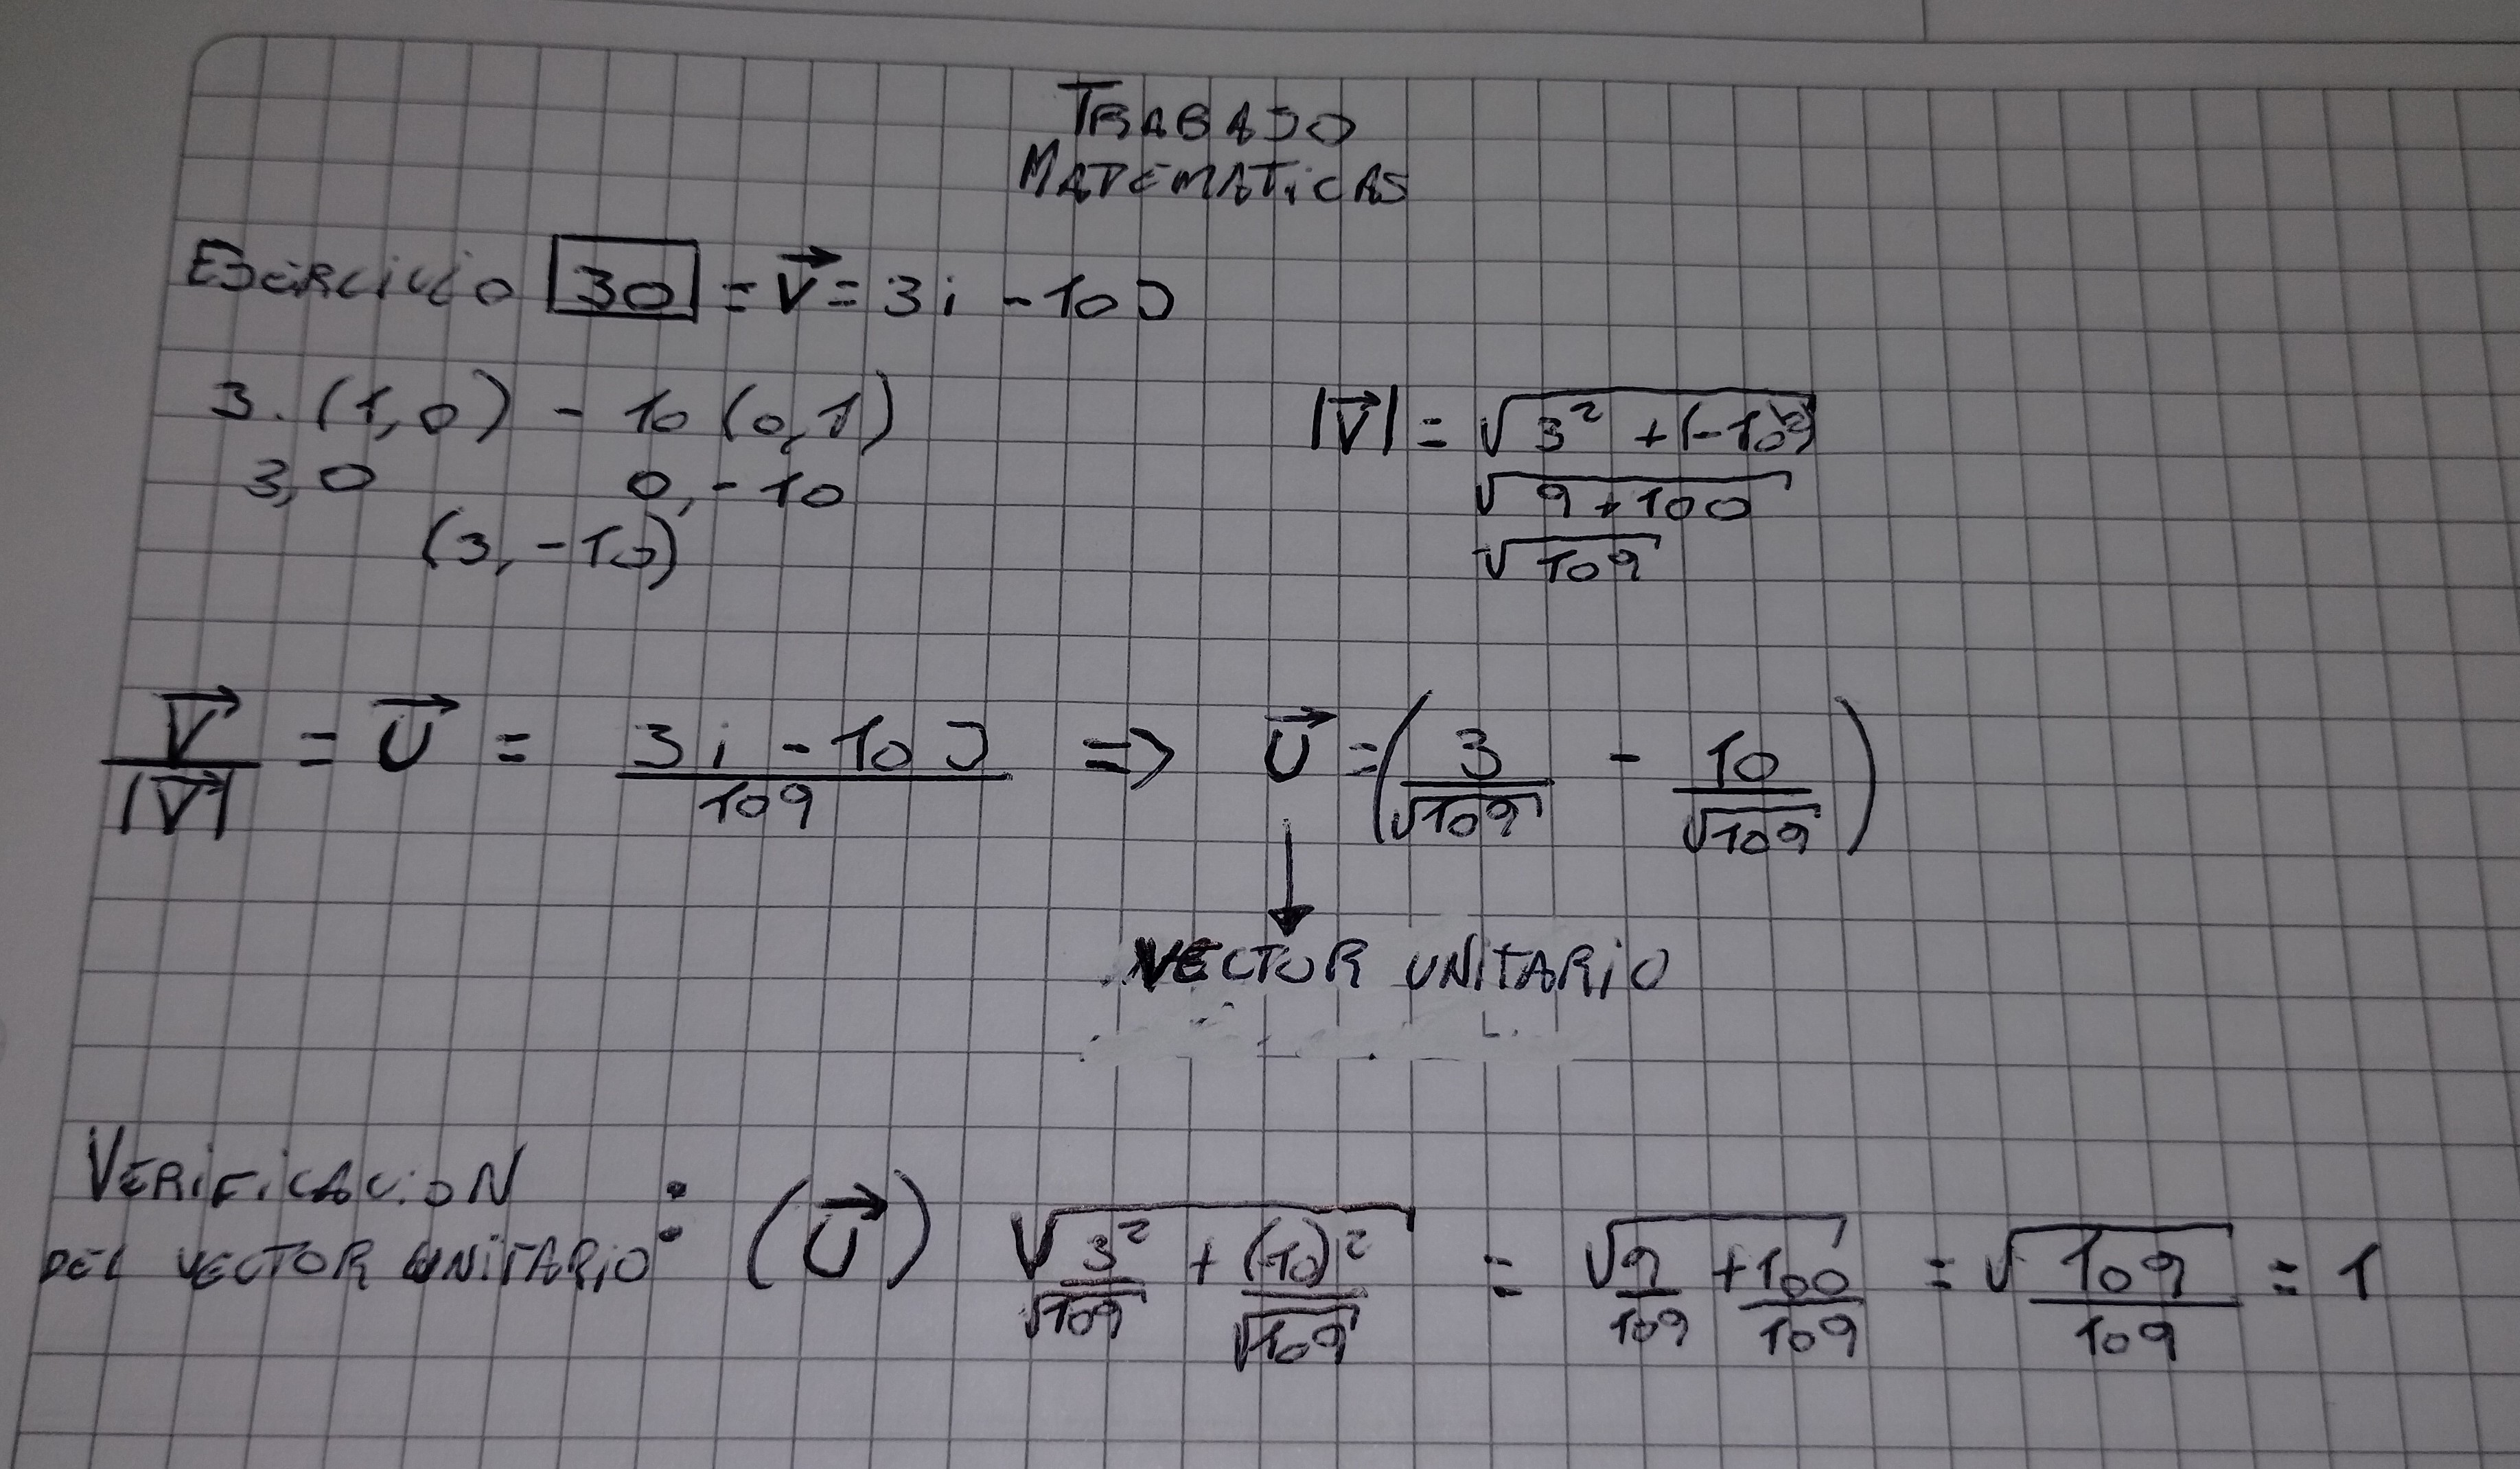 TRABAJO
MATEMATICAS
EJERCICIO 30 = V⃗ = 3i - 10J
3. (1,0) - 10 (0,1)
3,0 0,-10
(3,-10)
|V⃗| = √(3² + (-10²))
√(9+100)
√109
V⃗/|V⃗| = U⃗ = (3i - 10J)/109 => U⃗ = (3/√109 - 10/√109)
VECTOR UNITARIO
VERIFICACION
DEL VECTOR UNITARIO: (U⃗) √(3²/√109 + (-10)²/√109) = √(9/109 + 100/109) = √(109/109) = 1